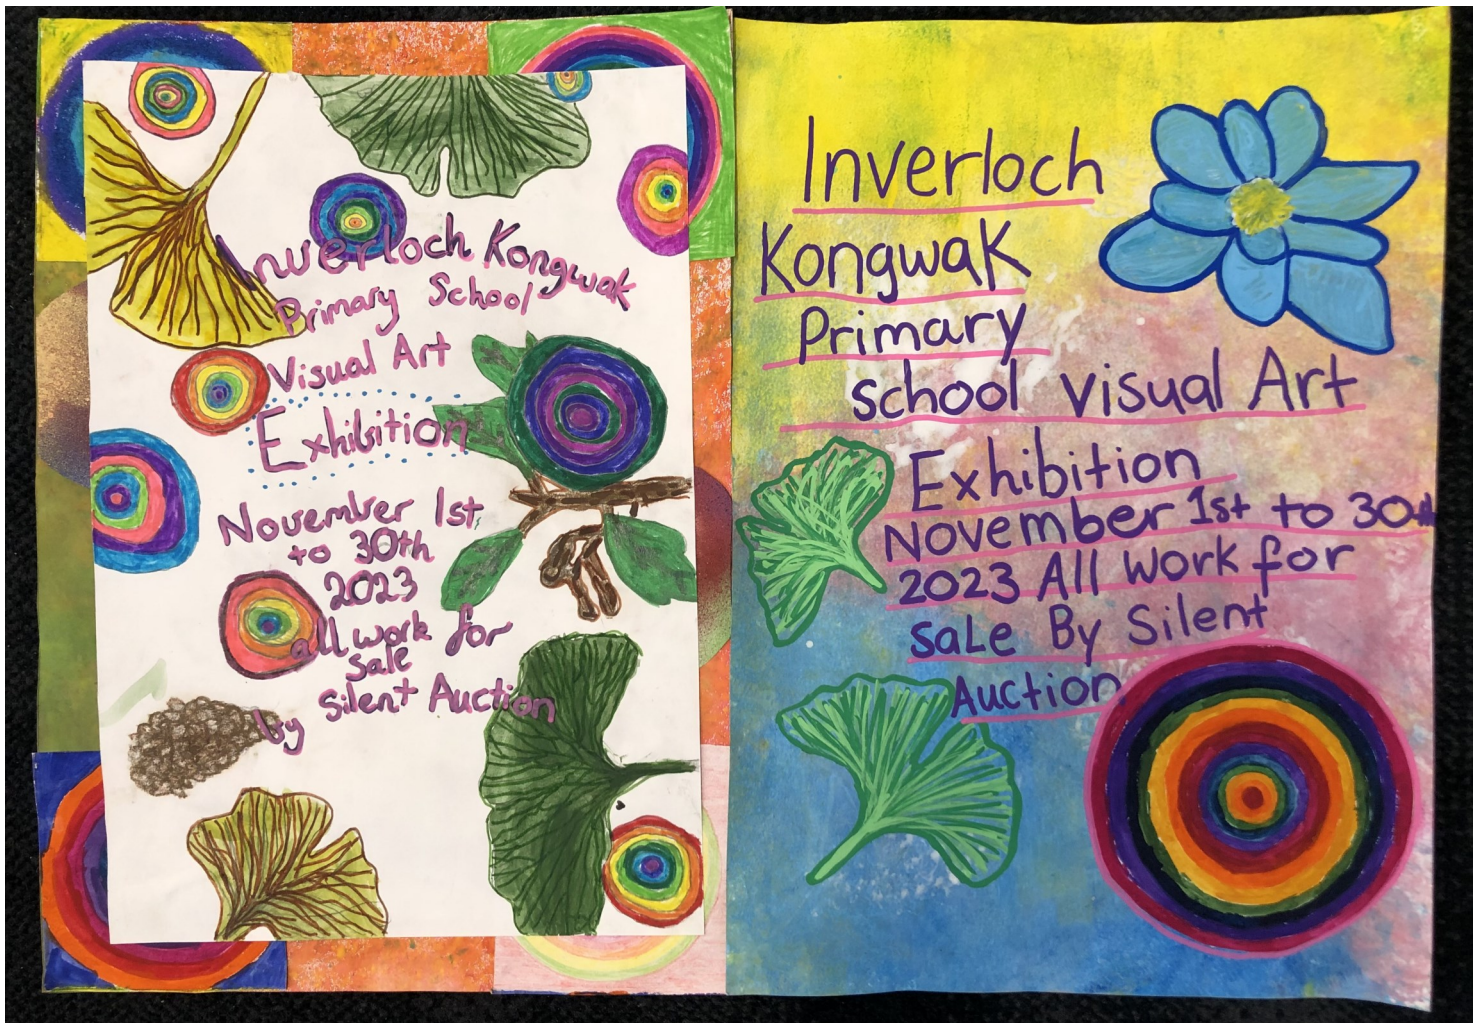 Inverloch Kongwak
Primary School
Visual Art
Exhibition
November 1st
to 30th
2023
all work for
sale
by Silent Auction
Inverloch
Kongwak
Primary
school visual Art
Exhibition
November 1st to 30th
2023 All work for
sale By Silent
Auction